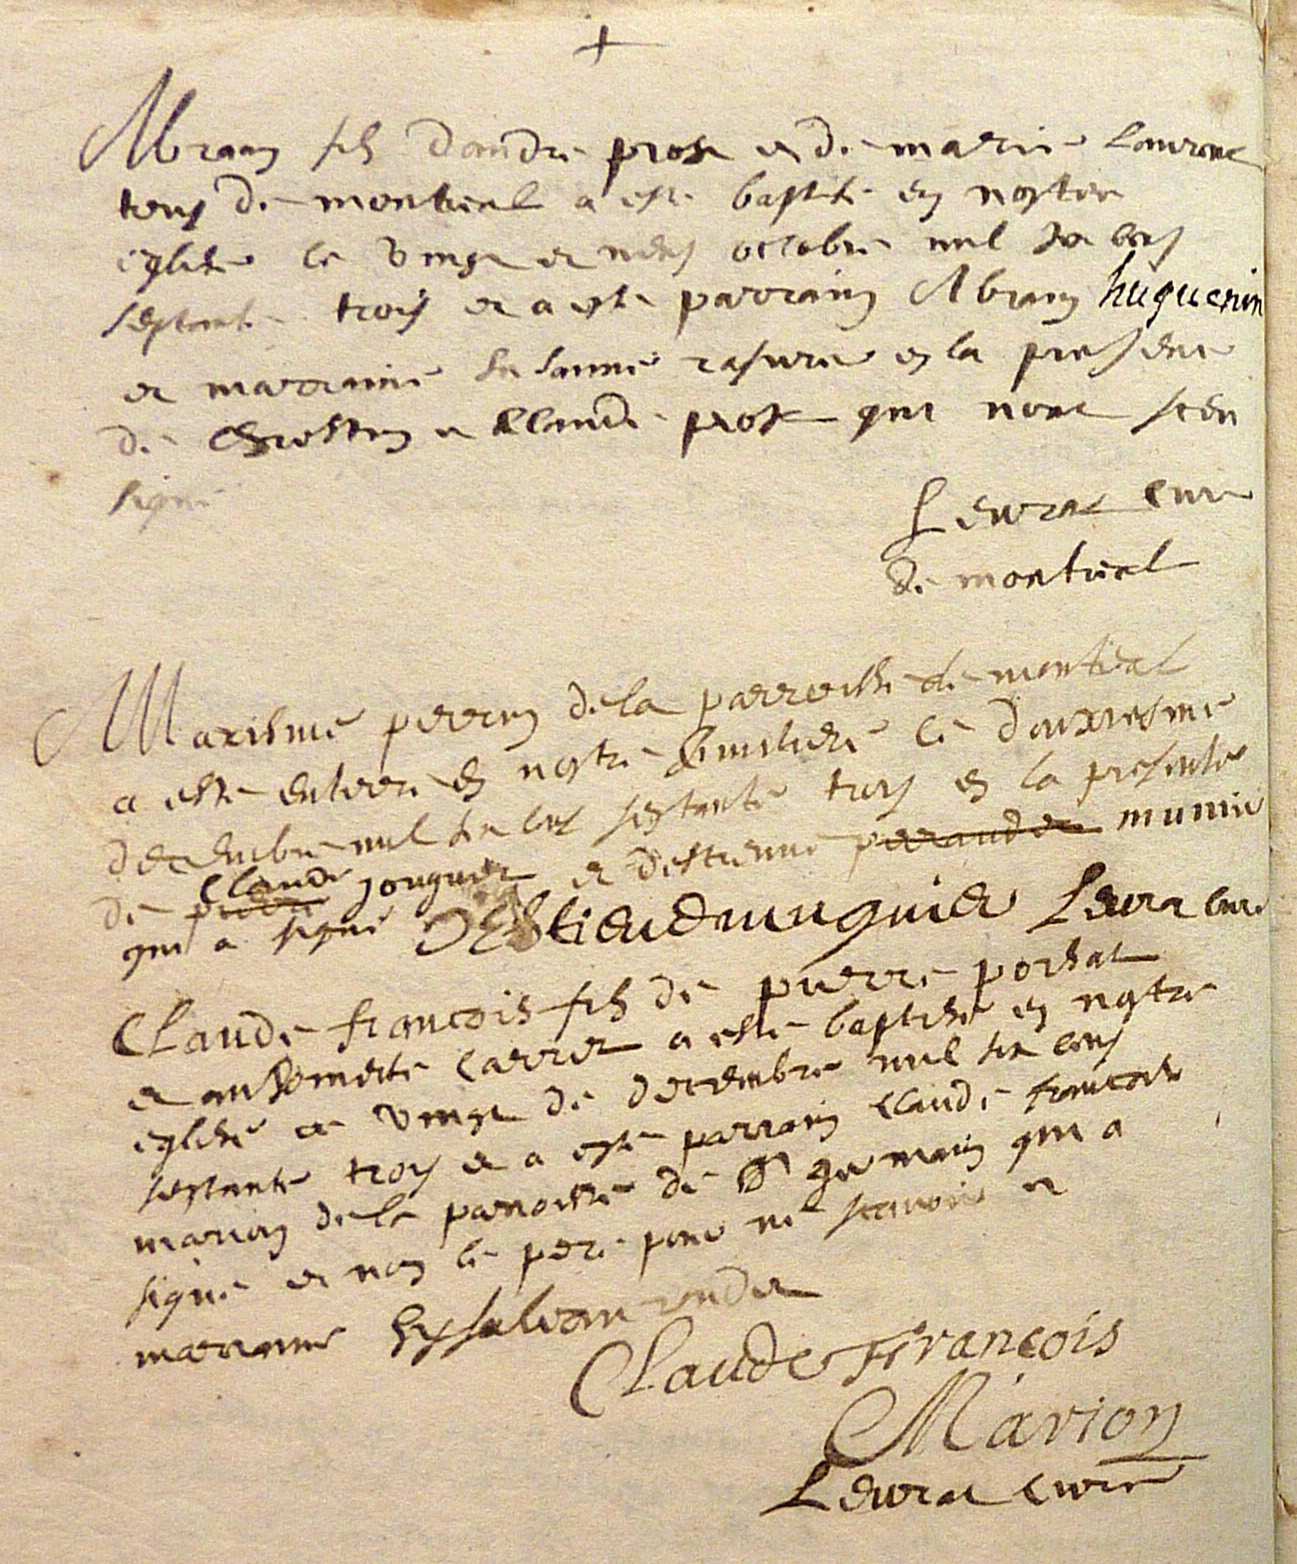 Abram fils dandre prost et de marie Laurent
tous de montreal a este baptise en nostre
eglise le vingt et neuf octobre mil six cens
septante trois et a este parrain Abram huguenin
et marraine Susanne rasure en la presence
de et Claude prost qui nont sceu
signe
Levrat cure
de montreal
Maxisme perrin de la parroisse de montreal
a este enterre en nostre simitiere le douxiesme
decembre mil six cens septante trois en la presence
de pierre Claude jouguet et destienne perraudet munié
qui a signé Levrat cure
Claude francois fils de pierre porsat
et anthoinette carret a este baptisé en nostre
eglise ce vingt de decembre mil six cens
septante trois et a este parrain Claude francois
marion de la parroisse de St germain qui a
signé et non le pere pour ne scavoir et
marraine
Claude François
Marion
Levrat curé